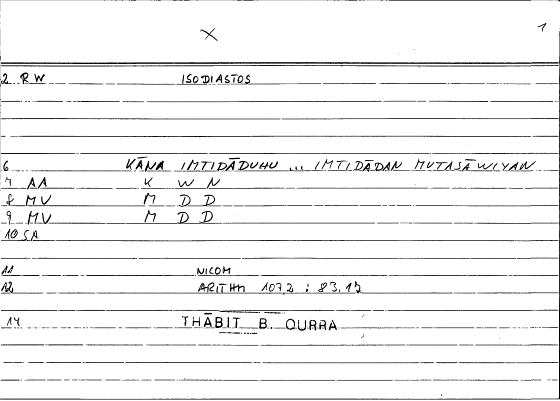 X 1
2 RW ISODIASTOS
6 KĀNA IMTIDĀDUHU ... IMTIDĀDAN MUTASĀWIYAN
7 AA K W N
8 MV M D D
9 MV M D D
10 SA
11 NICOM
12 ARITHM 107,2 : 83,17
14 THĀBIT B. QURRA